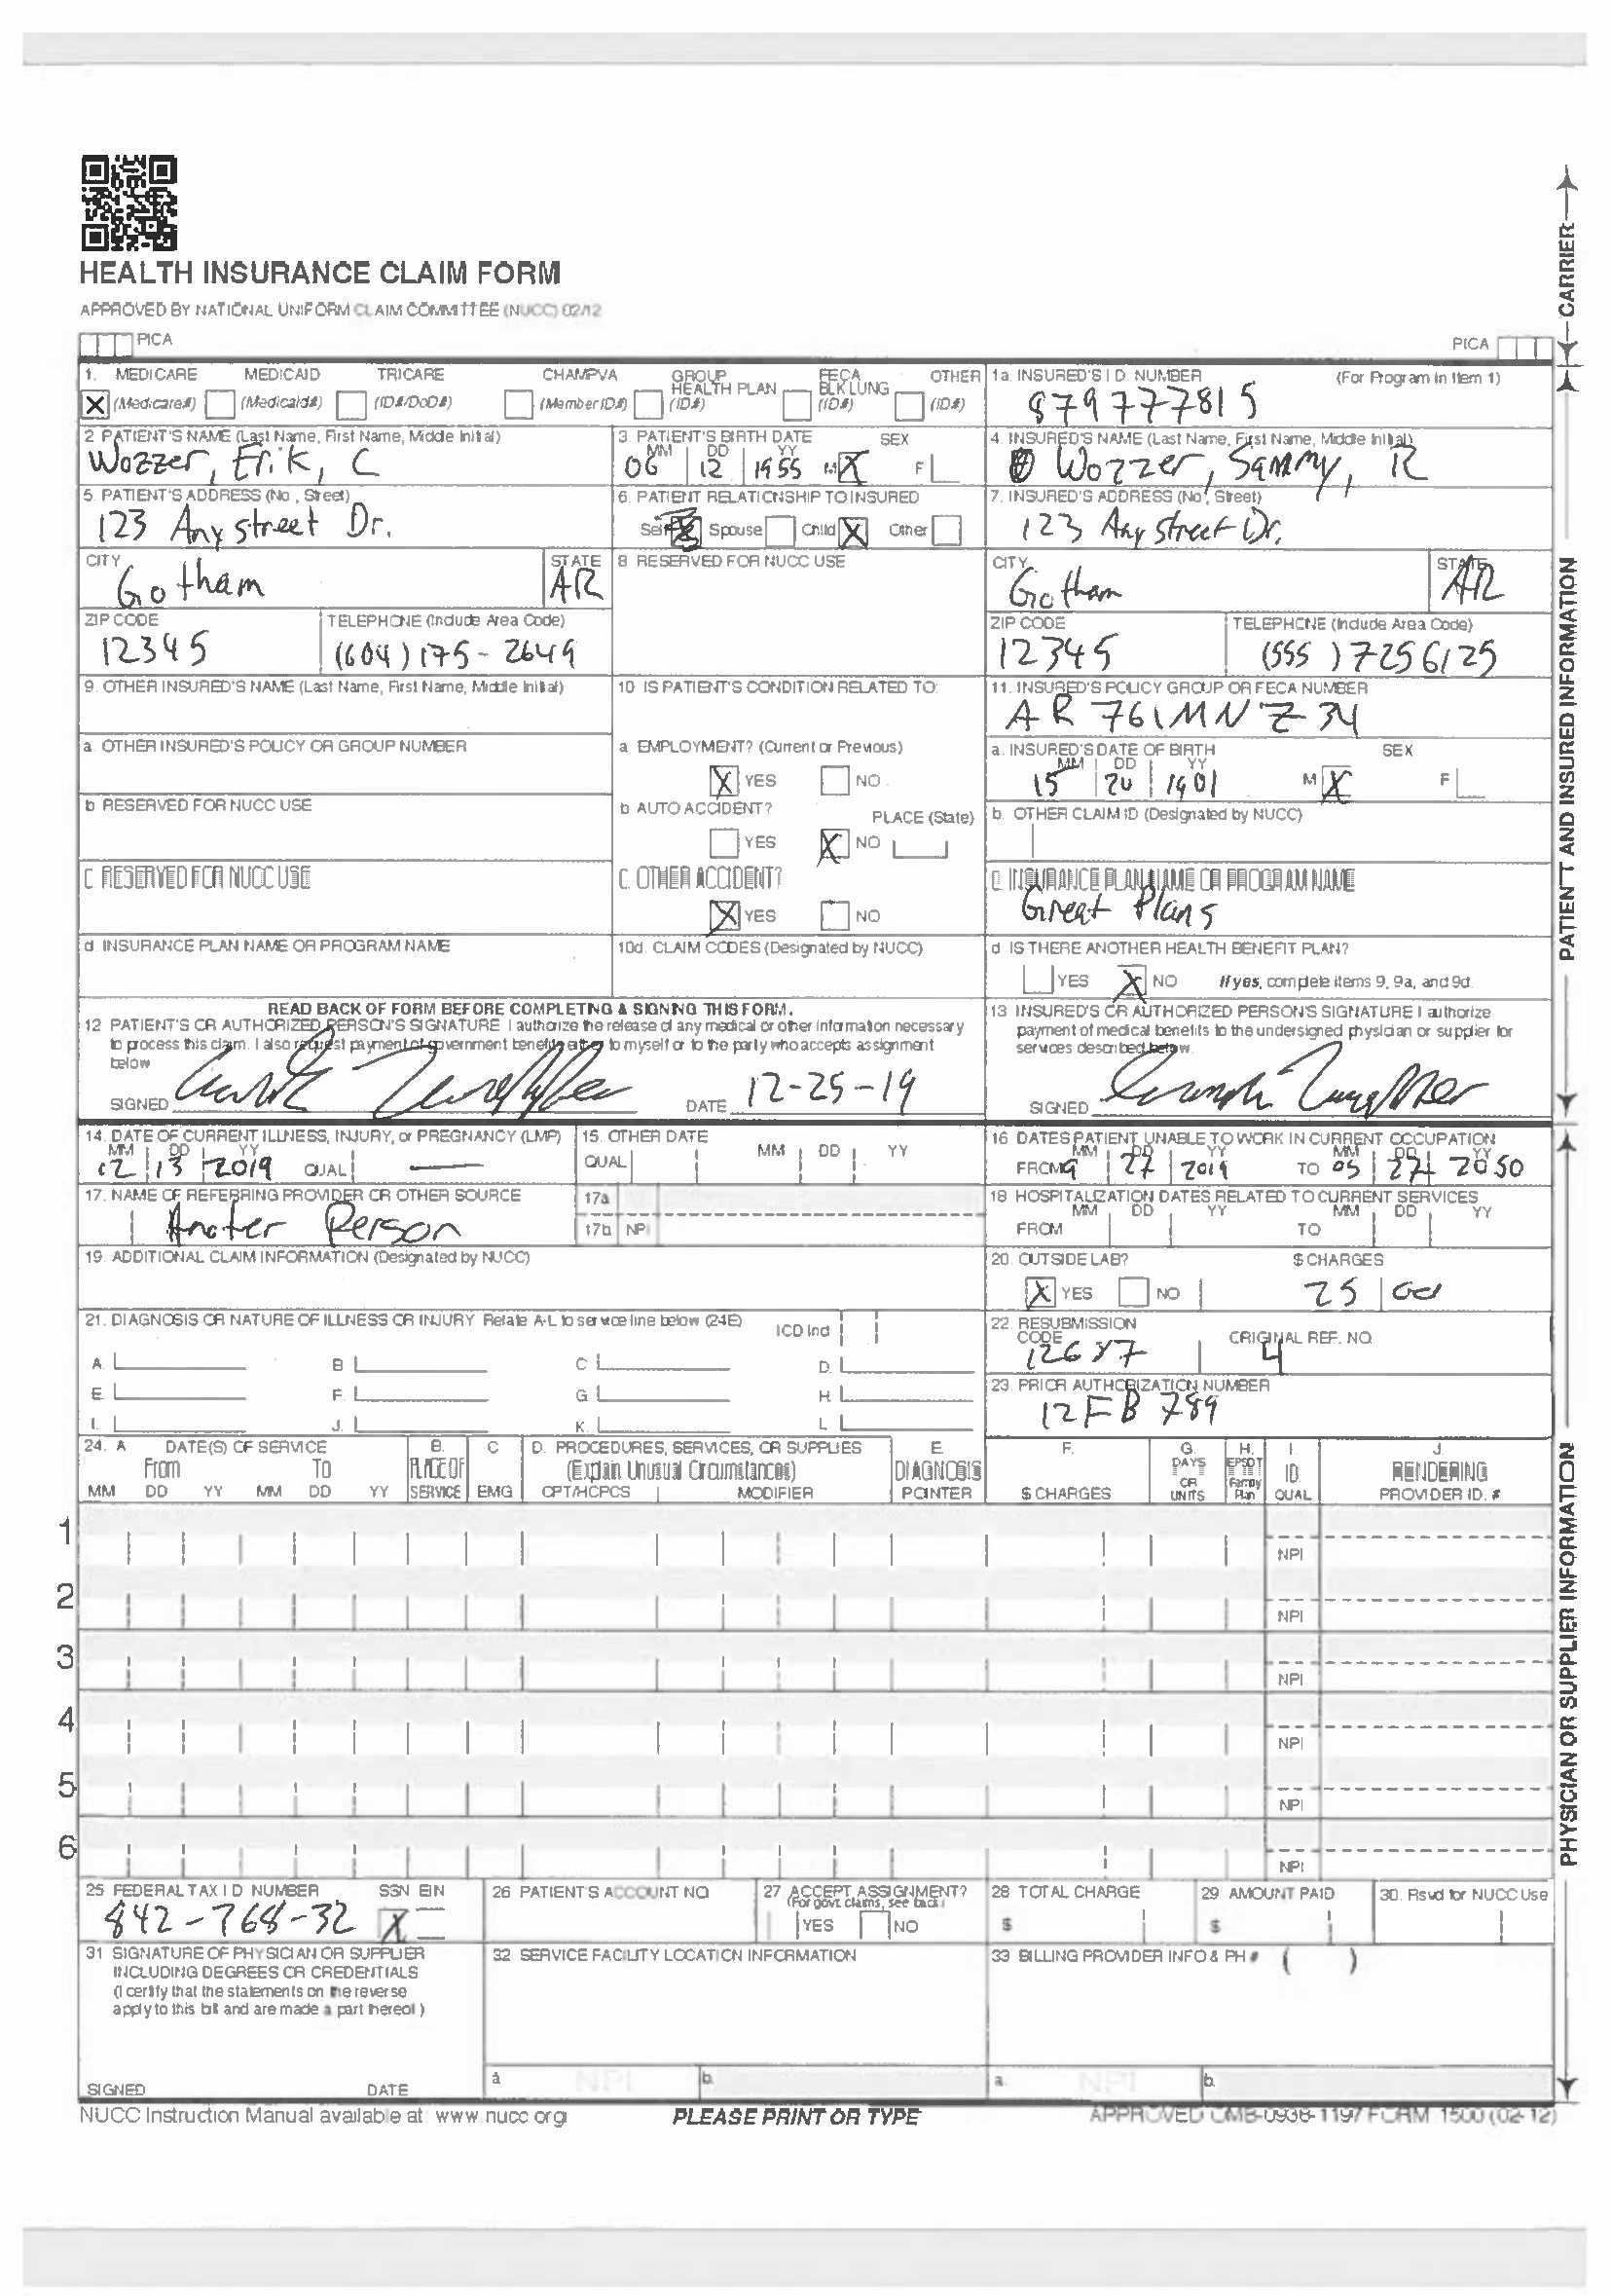 HEALTH INSURANCE CLAIM FORM
APPROVED BY NATIONAL UNIFORM CLAIM COMMITTEE (NUCC) 02/12
PICA
PICA
CARRIER
1. MEDICARE MEDICAID TRICARE CHAMPVA GROUP HEALTH PLAN FECA BLK LUNG OTHER
X (Medicare#) (Medicaid#) (ID#/DoD#) (Member ID#) (ID#) (ID#) (ID#)
1a. INSURED'S I.D. NUMBER (For Program in Item 1)
879777815
2. PATIENT'S NAME (Last Name, First Name, Middle Initial)
Wozzer, Erik, C
3. PATIENT'S BIRTH DATE SEX
MM DD YY
06 12 1955 M X F
4. INSURED'S NAME (Last Name, First Name, Middle Initial)
Wozzer, Sammy, R
5. PATIENT'S ADDRESS (No., Street)
123 Any street Dr.
6. PATIENT RELATIONSHIP TO INSURED
Self Spouse Child X Other
7. INSURED'S ADDRESS (No., Street)
123 Any street Dr.
CITY STATE
Gotham AR
8 RESERVED FOR NUCC USE
CITY STATE
Gotham AR
ZIP CODE TELEPHONE (Include Area Code)
12345 (604) 175-2649
ZIP CODE TELEPHONE (Include Area Code)
12345 (555) 7256125
9. OTHER INSURED'S NAME (Last Name, First Name, Middle Initial)
10 IS PATIENT'S CONDITION RELATED TO:
11. INSURED'S POLICY GROUP OR FECA NUMBER
AR 761MNZ34
a. OTHER INSURED'S POLICY OR GROUP NUMBER
a EMPLOYMENT? (Current or Previous)
X YES NO
a. INSURED'S DATE OF BIRTH SEX
MM DD YY
15 20 1901 M X F
b RESERVED FOR NUCC USE
b AUTO ACCIDENT? PLACE (State)
YES X NO
b. OTHER CLAIM ID (Designated by NUCC)
C. RESERVED FOR NUCC USE
C. OTHER ACCIDENT?
X YES NO
C INSURANCE PLAN NAME OR PROGRAM NAME
Great Plans
d. INSURANCE PLAN NAME OR PROGRAM NAME
10d. CLAIM CODES (Designated by NUCC)
d IS THERE ANOTHER HEALTH BENEFIT PLAN?
YES X NO If yes, complete items 9, 9a, and 9d.
PATIENT AND INSURED INFORMATION
READ BACK OF FORM BEFORE COMPLETING & SIGNING THIS FORM.
12 PATIENT'S OR AUTHORIZED PERSON'S SIGNATURE I authorize the release of any medical or other information necessary
to process this claim. I also request payment of government benefits either to myself or to the party who accepts assignment
below
SIGNED DATE 12-25-19
13 INSURED'S OR AUTHORIZED PERSON'S SIGNATURE I authorize
payment of medical benefits to the undersigned physician or supplier for
services described below.
SIGNED
14. DATE OF CURRENT ILLNESS, INJURY, or PREGNANCY (LMP)
MM DD YY
12 13 2019 QUAL
15. OTHER DATE
QUAL MM DD YY
16 DATES PATIENT UNABLE TO WORK IN CURRENT OCCUPATION
MM DD YY MM DD YY
FROM 9 27 2019 TO 05 27 2050
17. NAME OF REFERRING PROVIDER OR OTHER SOURCE
Anoter Person
17a
17b NPI
18 HOSPITALIZATION DATES RELATED TO CURRENT SERVICES
MM DD YY MM DD YY
FROM TO
19. ADDITIONAL CLAIM INFORMATION (Designated by NUCC)
20. OUTSIDE LAB? $ CHARGES
X YES NO 25
21. DIAGNOSIS OR NATURE OF ILLNESS OR INJURY Relate A-L to service line below (24E) ICD Ind
A. B C D.
E F. G H.
I. J. K L
22. RESUBMISSION
CODE ORIGINAL REF. NO.
12687 4
23. PRIOR AUTHORIZATION NUMBER
12FB 789
24. A DATE(S) OF SERVICE B. C D. PROCEDURES, SERVICES, OR SUPPLIES E. F. G. H. I. J.
From To PLACE OF (Explain Unusual Circumstances) DIAGNOSIS DAYS OR UNITS EPSDT Family Plan ID. RENDERING
MM DD YY MM DD YY SERVICE EMG CPT/HCPCS MODIFIER POINTER $ CHARGES QUAL PROVIDER ID. #
1 NPI
2 NPI
3 NPI
4 NPI
5 NPI
6 NPI
PHYSICIAN OR SUPPLIER INFORMATION
25 FEDERAL TAX I D NUMBER SSN EIN
842-768-32 X
26 PATIENT'S ACCOUNT NO.
27 ACCEPT ASSIGNMENT?
(For govt. claims, see back)
YES NO
28 TOTAL CHARGE
$
29 AMOUNT PAID
$
30. Rsvd for NUCC Use
31 SIGNATURE OF PHYSICIAN OR SUPPLIER
INCLUDING DEGREES OR CREDENTIALS
(I certify that the statements on the reverse
apply to this bill and are made a part thereof.)
SIGNED DATE
32 SERVICE FACILITY LOCATION INFORMATION
a NPI b.
33 BILLING PROVIDER INFO & PH # ( )
a. NPI b.
NUCC Instruction Manual available at: www.nucc.org
PLEASE PRINT OR TYPE
APPROVED OMB-0938-1197 FORM 1500 (02-12)